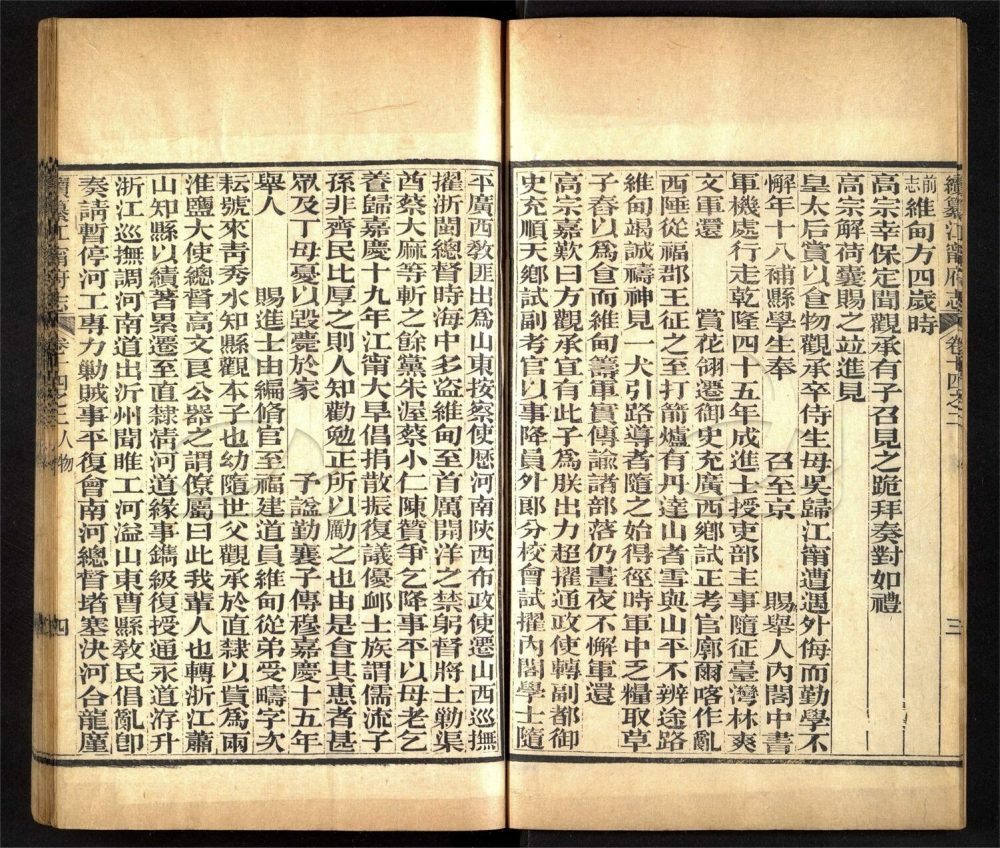 續纂江甯府志 卷十四之二 三
前志維甸方四歲時
高宗幸保定聞觀承有子召見之跪拜奏對如禮
高宗解荷囊賜之並進見
皇太后賞以食物觀承卒侍生母吳歸江甯遭遇外侮而勤學不
懈年十八補縣學生奉 召至京 賜舉人內閣中書
軍機處行走乾隆四十五年成進士授吏部主事隨征臺灣林爽
文軍還 賞花翎遷御史充廣西鄉試正考官廓爾喀作亂
西陲從福郡王征之至打箭爐有丹達山者雪與山平不辨途路
維甸竭誠禱神見一犬引路導者隨之始得徑時軍中乏糧取草
子舂以為食而維甸籌軍實傳諭諸部落仍晝夜不懈軍還
高宗嘉歎曰方觀承宜有此子為朕出力超擢通政使轉副都御
史充順天鄉試副考官以事降員外郎分校會試擢內閣學士隨
平廣西教匪出為山東按察使歷河南陝西布政使遷山西巡撫
擢浙閩總督時海中多盜維甸至首厲開洋之禁躬督將士勦渠
酋蔡大麻等斬之餘黨朱渥蔡小仁陳贊爭乞降事平以母老乞
養歸嘉慶十九年江甯大旱倡捐散振復議優䘏士族謂儒流子
孫非齊民比厚之則人知勸勉正所以勵之也由是食其惠者甚
眾及丁母憂以毀薨於家 予諡勤襄子傳穆嘉慶十五年
舉人 賜進士由編脩官至福建道員維甸從弟受疇字次
耘號來青秀水知縣觀本子也幼隨世父觀承於直隸以貲為兩
淮鹽大使總督高文良公器之謂僚屬曰此我輩人也轉浙江蕭
山知縣以績著累遷至直隸清河道緣事鐫級復授通永道洊升
浙江巡撫調河南道出沂州聞睢工河溢山東曹縣教民倡亂即
奏請暫停河工專力勦賊事平復會南河總督堵塞決河合龍廑
續纂江甯府志 卷十四之二人物 四